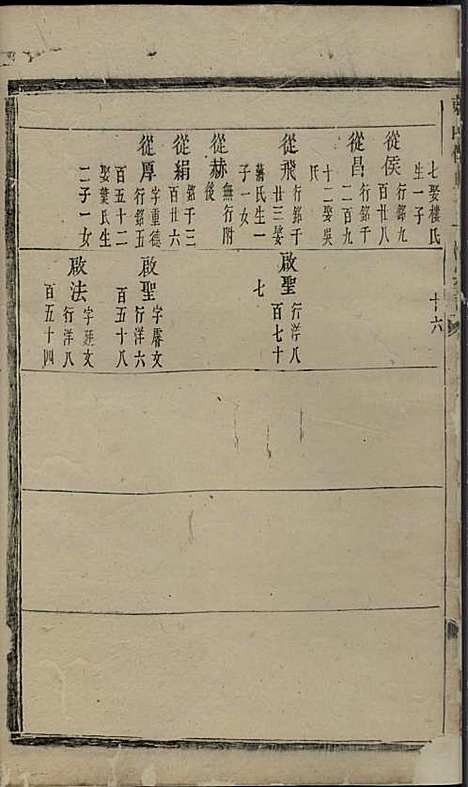 七娶樓氏
生一子
從侯 行銘九
百廿八
從昌 行銘千
二百九
十二娶吳
氏
從飛 行銘千
廿三娶
蔣氏生一
子一女
從赫 無行附
後
從絹 銘千三
百廿六
從厚 字重德
行銘五
百五十二
娶葉氏生
二子一女
十六
啟聖 行洋八
百七十
七
啟聖 字馨文
行洋六
百五十八
啟法 字廷文
行洋八
百五十四